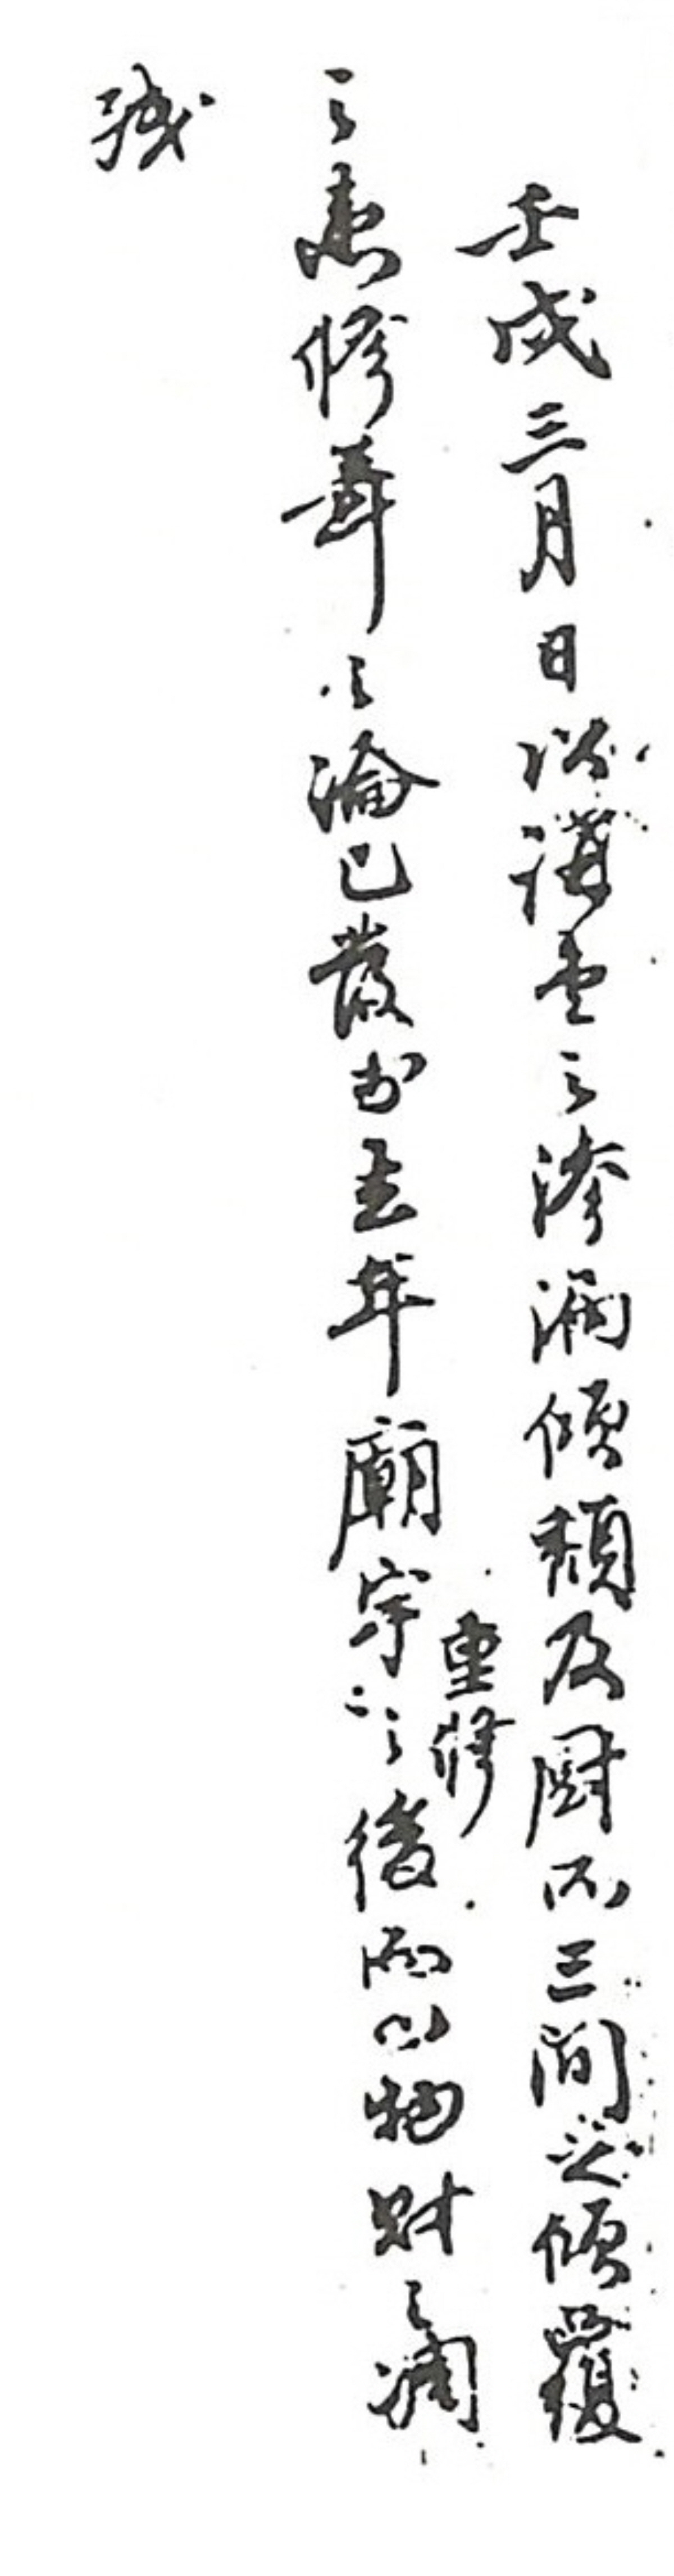 壬戌三月日以講堂之滲漏傾頹及厨所三間之傾覆
之患修葺之論已發於去年廟宇重修之後而以物財之凋
殘